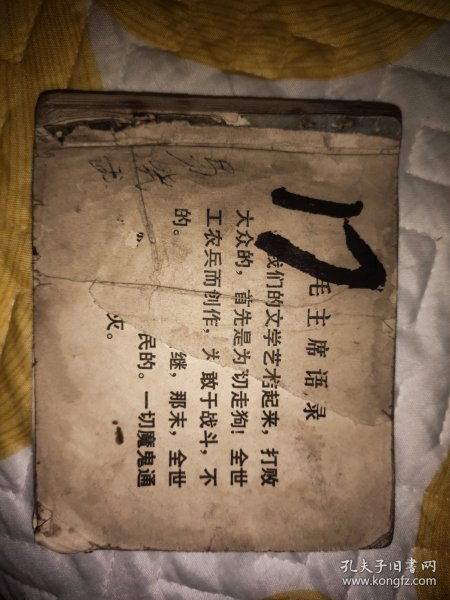 毛主席语录
我们的文学艺术起来，打败
大众的，首先是为切走狗！全世
工农兵而创作，为敢于战斗，不
的。 继，那末，全世
民的。一切魔鬼通
灭。
17
孔夫子旧书网
www.kongfz.com